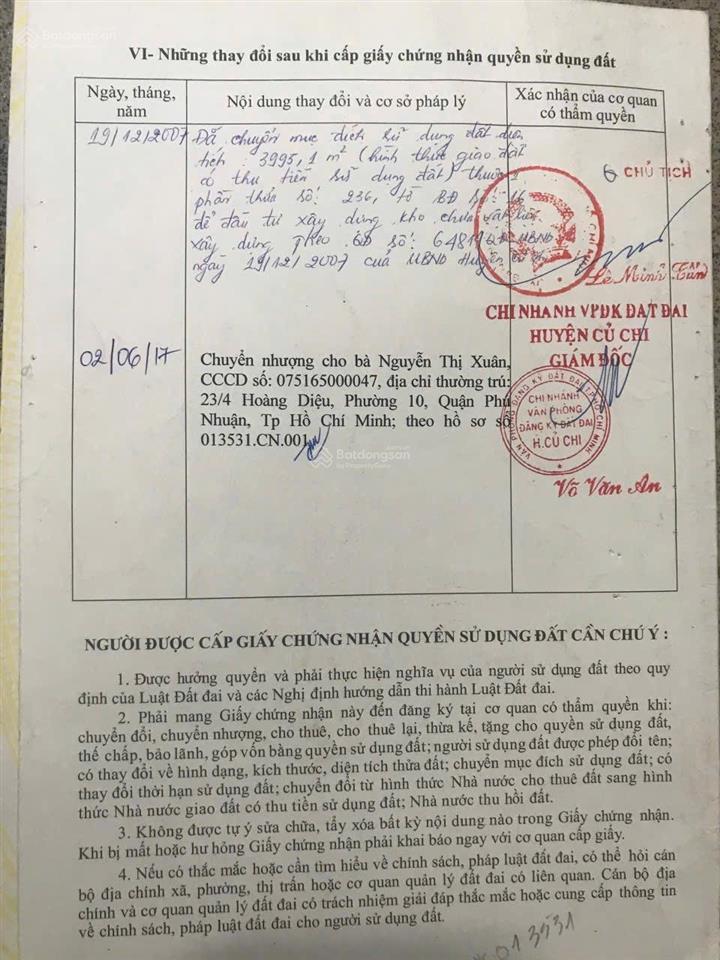 Batdongsan
by PropertyGuru
VI- Những thay đổi sau khi cấp giấy chứng nhận quyền sử dụng đất
Ngày, tháng, năm
Nội dung thay đổi và cơ sở pháp lý
Xác nhận của cơ quan có thẩm quyền
19/12/2007
Đã chuyển mục đích sử dụng đất diện
tích: 3995,1 m² (hình thức giao đất
có thu tiền sử dụng đất) thuộc 1
phần thửa số: 236, tờ BĐ số: 16
để đầu tư xây dựng kho chứa vật liệu
xây dựng theo QĐ số: 6481/QĐ-UBND
ngày 19/12/2007 của UBND Huyện
CHỦ TỊCH
Lê Minh Tấn
02/06/17
Chuyển nhượng cho bà Nguyễn Thị Xuân,
CCCD số: 075165000047, địa chỉ thường trú:
23/4 Hoàng Diệu, Phường 10, Quận Phú
Nhuận, Tp Hồ Chí Minh; theo hồ sơ số
013531.CN.001
CHI NHÁNH VPĐK ĐẤT ĐAI
HUYỆN CỦ CHI
GIÁM ĐỐC
VĂN PHÒNG ĐĂNG KÝ ĐẤT ĐAI TP.HỒ CHÍ MINH
CHI NHÁNH
VĂN PHÒNG
ĐĂNG KÝ ĐẤT ĐAI
H.CỦ CHI
Võ Văn An
Batdongsan
by PropertyGuru
NGƯỜI ĐƯỢC CẤP GIẤY CHỨNG NHẬN QUYỀN SỬ DỤNG ĐẤT CẦN CHÚ Ý :
1. Được hưởng quyền và phải thực hiện nghĩa vụ của người sử dụng đất theo quy
định của Luật Đất đai và các Nghị định hướng dẫn thi hành Luật Đất đai.
2. Phải mang Giấy chứng nhận này đến đăng ký tại cơ quan có thẩm quyền khi:
chuyển đổi, chuyển nhượng, cho thuê, cho thuê lại, thừa kế, tặng cho quyền sử dụng đất,
thế chấp, bảo lãnh, góp vốn bằng quyền sử dụng đất; người sử dụng đất được phép đổi tên;
có thay đổi về hình dạng, kích thước, diện tích thửa đất; chuyển mục đích sử dụng đất; có
thay đổi thời hạn sử dụng đất; chuyển đổi từ hình thức Nhà nước cho thuê đất sang hình
thức Nhà nước giao đất có thu tiền sử dụng đất; Nhà nước thu hồi đất.
3. Không được tự ý sửa chữa, tẩy xóa bất kỳ nội dung nào trong Giấy chứng nhận.
Khi bị mất hoặc hư hỏng Giấy chứng nhận phải khai báo ngay với cơ quan cấp giấy.
4. Nếu có thắc mắc hoặc cần tìm hiểu về chính sách, pháp luật đất đai, có thể hỏi cán
bộ địa chính xã, phường, thị trấn hoặc cơ quan quản lý đất đai có liên quan. Cán bộ địa
chính và cơ quan quản lý đất đai có trách nhiệm giải đáp thắc mắc hoặc cung cấp thông tin
về chính sách, pháp luật đất đai cho người sử dụng đất.
013531